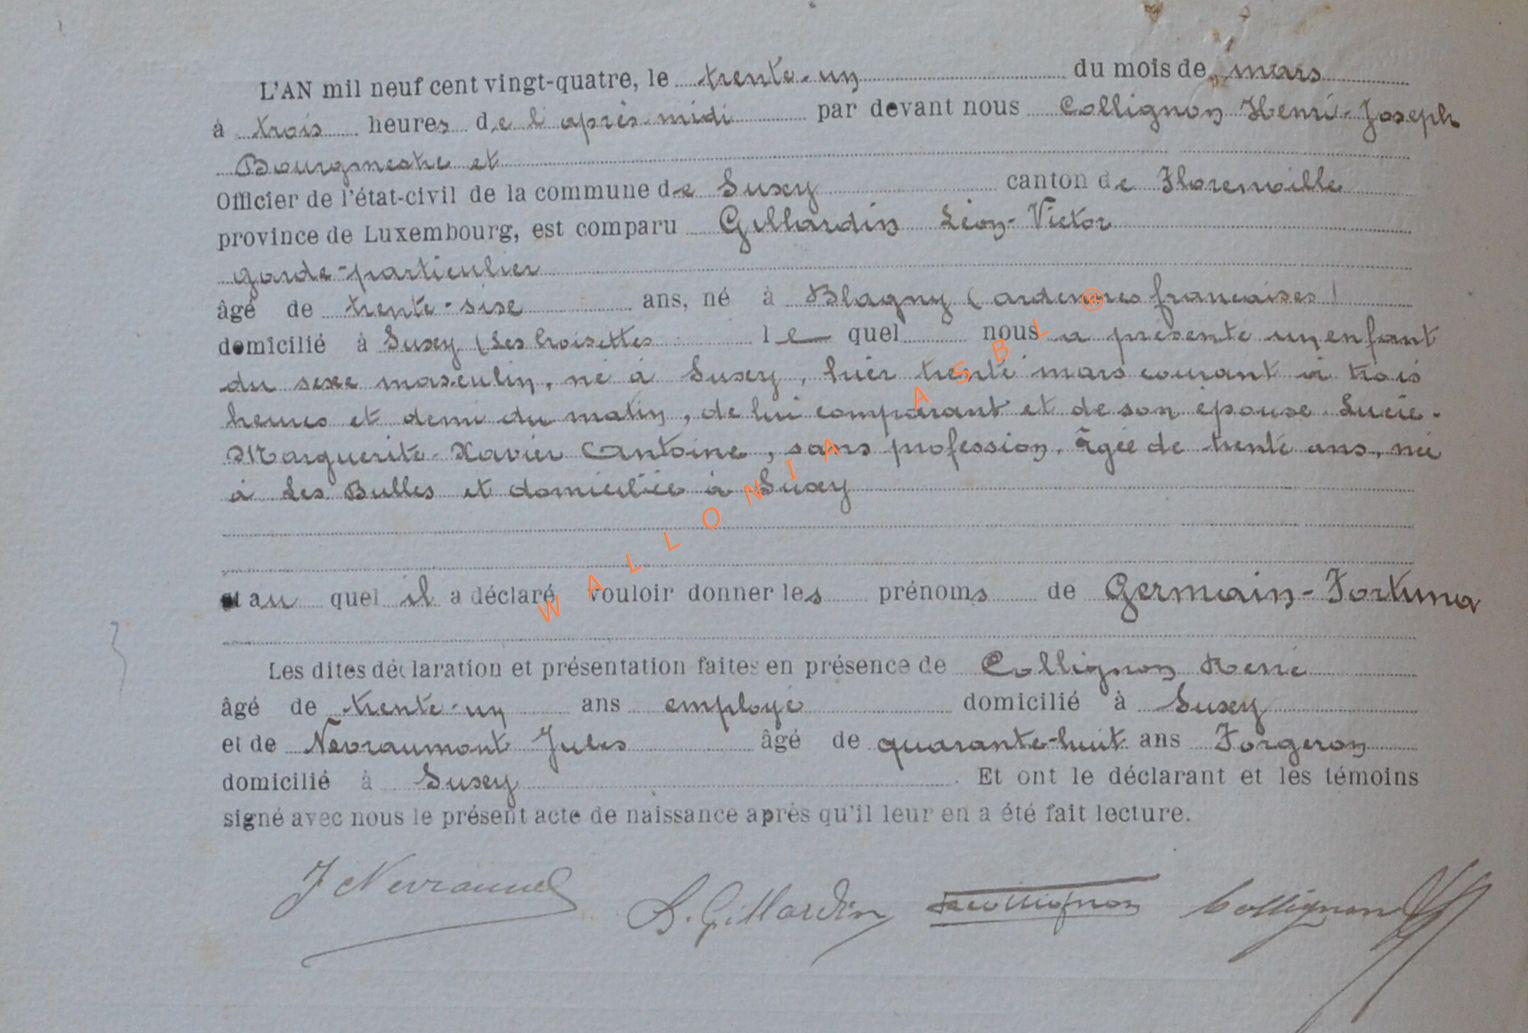 L'AN mil neuf cent vingt-quatre, le trente-un du mois de mars
à trois heures de l'après-midi par devant nous Collignon Henri-Joseph
Bourgmestre et
Officier de l'état-civil de la commune de Suxy canton de Florenville
province de Luxembourg, est comparu Gillardin Léon-Victor
garde-particulier
âgé de trente-sixe ans, né à Blagny (ardennes françaises)
domicilié à Suxy (Les Croisettes le quel nous a présenté un enfant
du sexe masculin, né à Suxy, hier trente mars courant à trois
heures et demi du matin, de lui comparant et de son épouse Lucie-
Marguerite-Xavier Antoine, sans profession, âgée de trente ans, née
à Les Bulles et domiciliée à Suxy
et au quel il a déclaré vouloir donner les prénoms de Germain-Fortuna
Les dites déclaration et présentation faites en présence de Collignon René
âgé de trente-un ans employé domicilié à Suxy
et de Nevraumont Jules âgé de quarante-huit ans Forgeron
domicilié à Suxy. Et ont le déclarant et les témoins
signé avec nous le présent acte de naissance après qu'il leur en a été fait lecture.
L. Gillardin Collignon
WALLONIA ASBL @